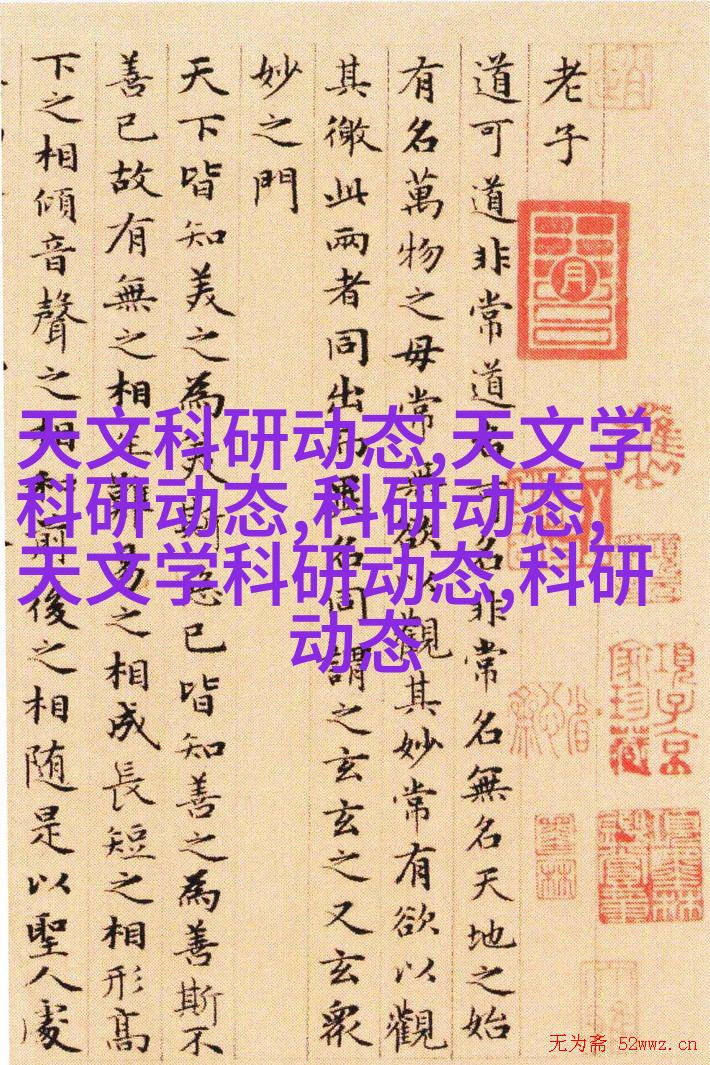 老子
道可道非常道名可名非常名無名天地之始
有名萬物之母常無欲以觀其妙常有欲以觀
其徼此兩者同出而異名同謂之玄玄之又玄衆
妙之門
天下皆知美之為美斯惡已皆知善之為善斯不
善已故有無之相生難易之相成長短之相形高
下之相傾音聲之相和前後之相随是以聖人處
天文科研动态,天文学
科研动态,科研动态,
天文学科研动态,科研
动态
項子京
家珍藏
无为斋 52wwz.cn